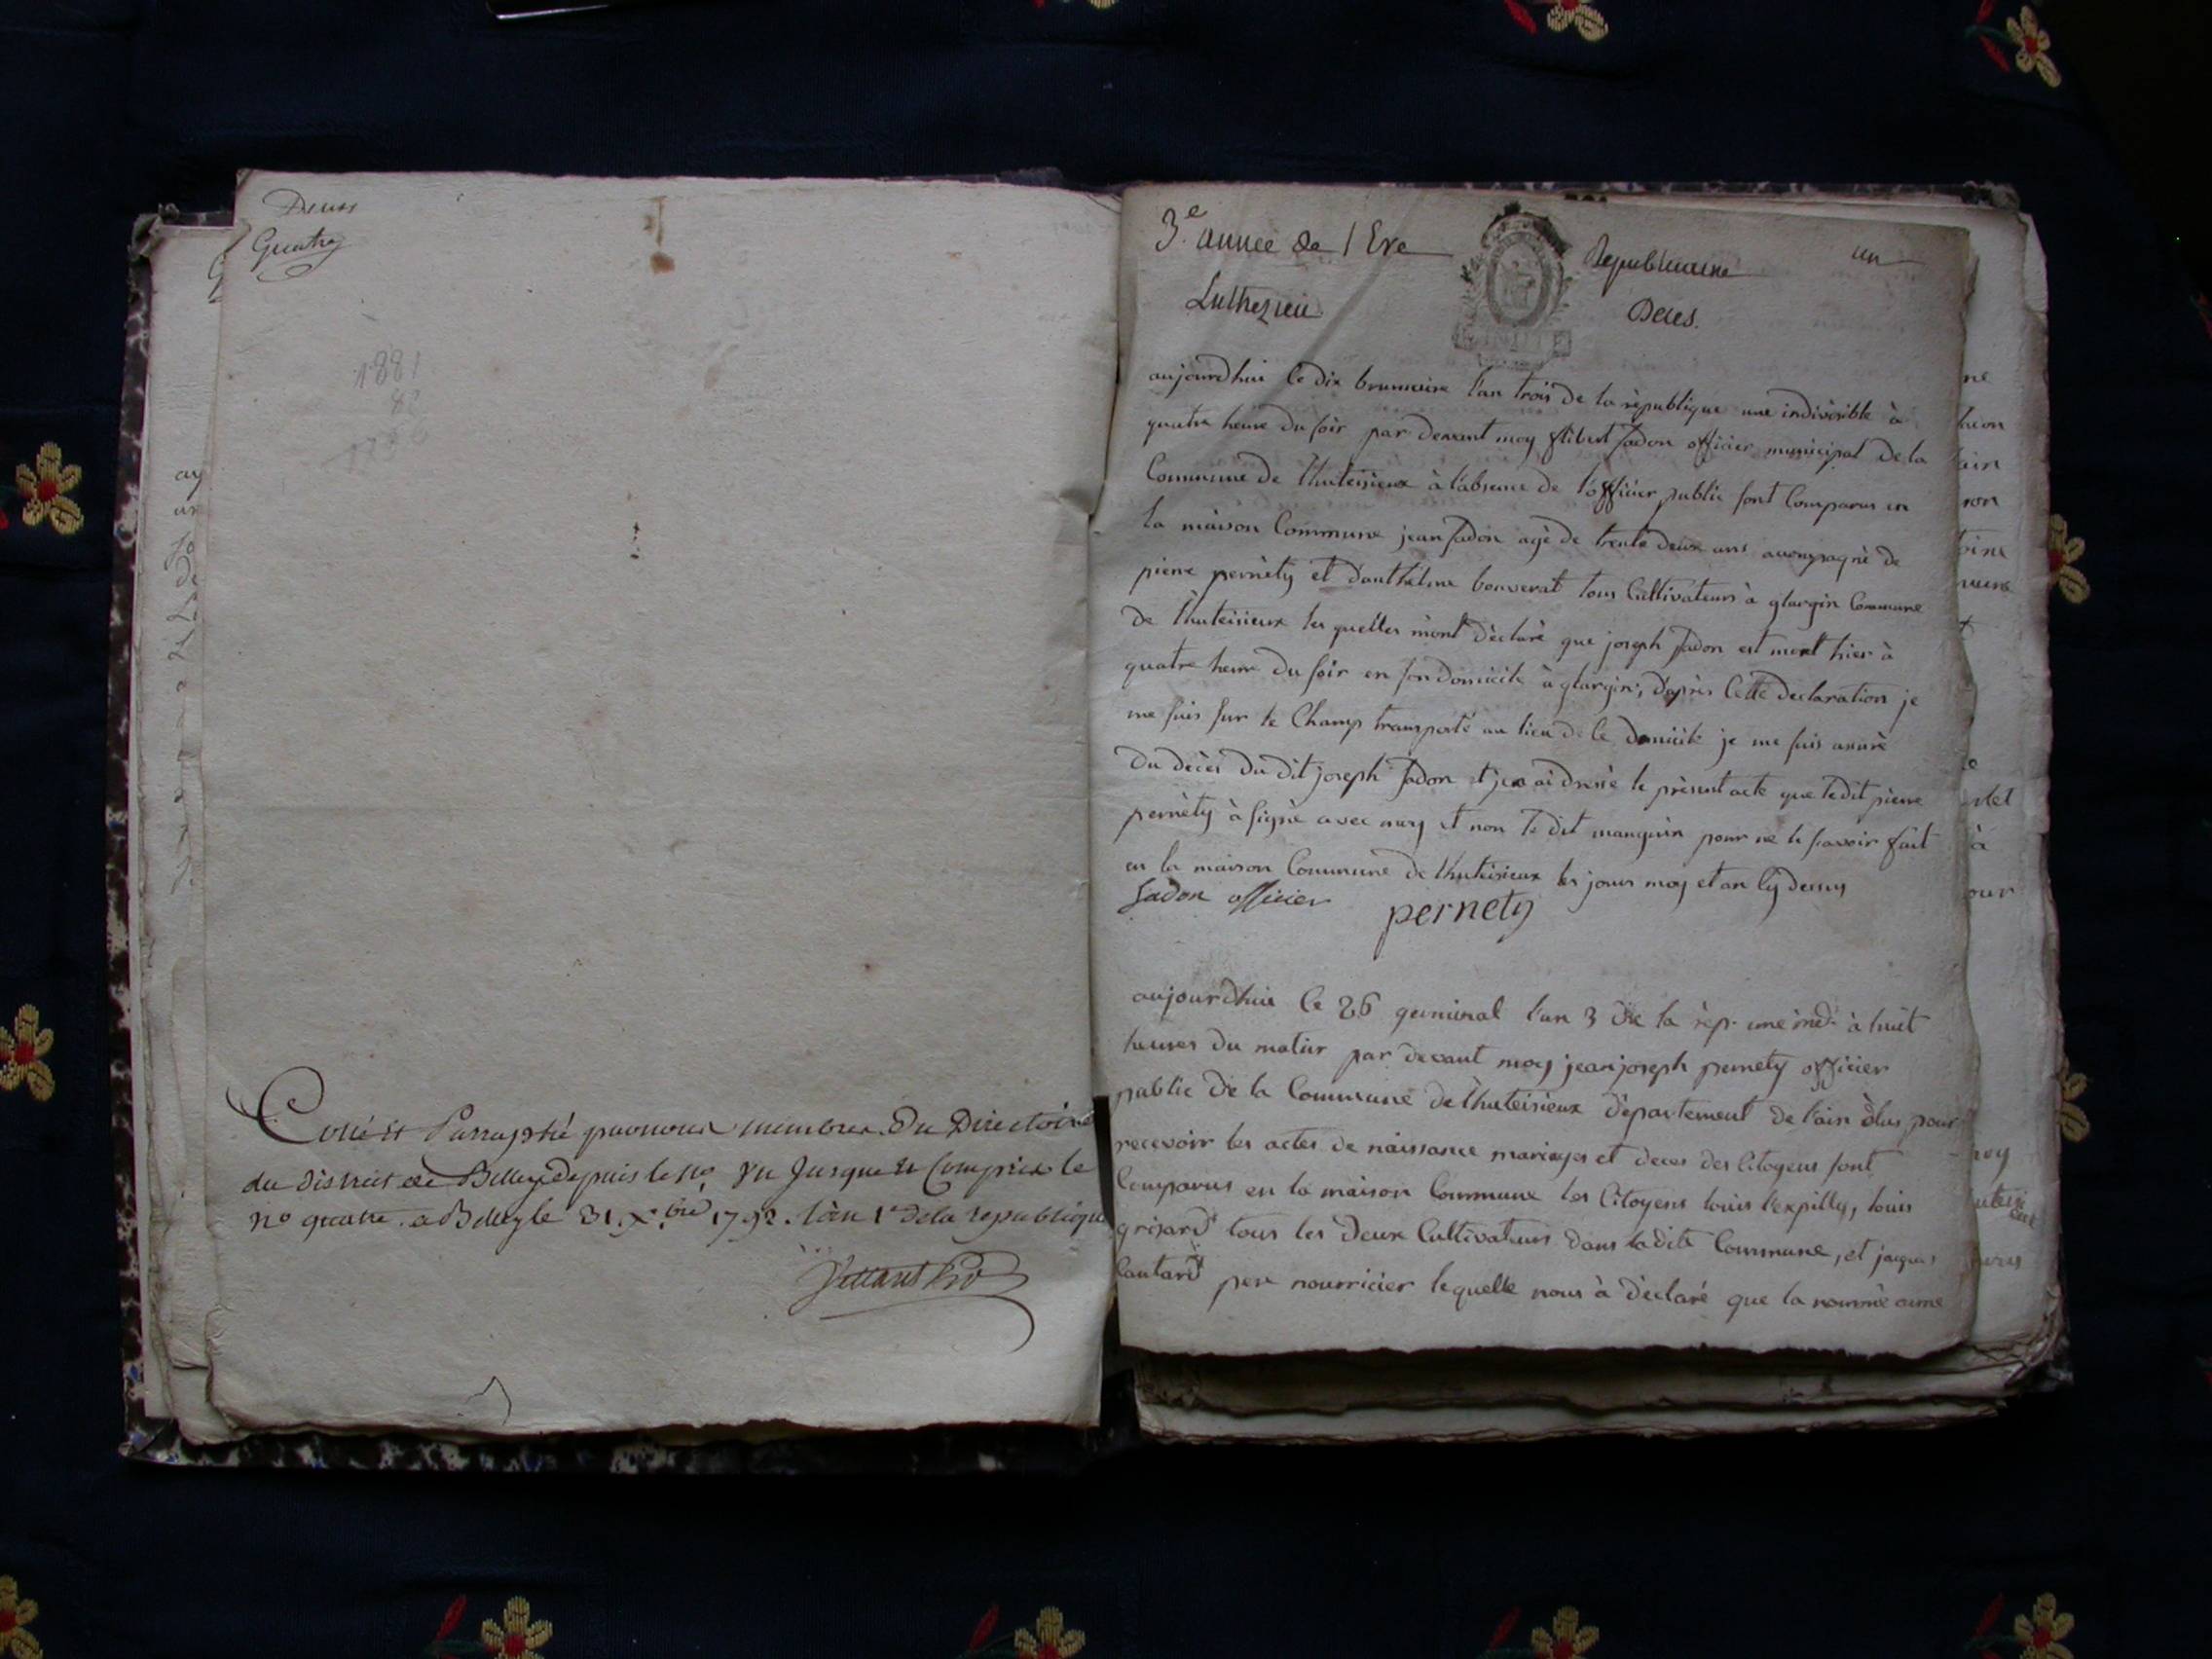 Deux
Quatre
1881
82
Cotté et Parraphé par nous membre du Directoire
du District de Belley depuis le no. un Jusque et Compris le
no quatre. a Belley le 31. Xbre 1792. l'an 1er de la republique
3e. année de l Ere Republicaine un
Luthezieu Deces.
aujourdhui le dix brumaire l'an trois de la république une indivisible à
quatre heure du soir par devant moy fadon officier municipal de la
Commune de thuteisieux à l'absence de l'officier public sont Comparus en
la màison Commune jean fadon agé de trente deux ans accompagné de
pierre pernèty et d'anthelme bouverat tous Cultivateurs à glargin Commune
de thuteisieux les quelles m'ont déclaré que joseph fadon est mort hier à
quatre heure du soir en son domicile à glargin, d'après Cette declaration je
me suis sur le Champ transporté au lieu de Ce domicile je me suis assuré
du décès du dit joseph fadon et j'en ai dressé le présent acte que le dit pierre
pernèty à signé avec moy et non le dit manguin pour ne le savoir fait
en la maison Commune de thuteisieux les jours moy et an Cy dessus
fadon officier pernety
aujourdhui le 26 germinal l'an 3 de la rép. une ind. à huit
heures du matin par devant moy jean joseph pernety officier
public de la Commune de thuteisieux département de l'ain élus pour
recevoir les actes de naissance mariages et deces des Citoyens sont
Comparus en la maison Commune les Citoyens louis l'expilly, louis
grisard tous les deux Cultivateurs dans la dite Commune, et jaques
lautard pere nourricier lequelle nous à déclaré que la nommé